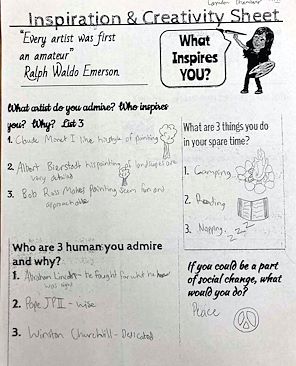 Inspiration & Creativity Sheet
"Every artist was first
an amateur"
Ralph Waldo Emerson
What
Inspires
YOU?
What artist do you admire? Who inspires
you? Why? List 3
1. Claude Monet I like his style of painting
2. Albert Bierstadt his painting of landscapes are
very detailed
3. Bob Ross Makes painting seem fun and
approachable
What are 3 things you do
in your spare time?
1. Camping
2. Reading
3. Napping
zzz
Who are 3 human you admire
and why?
1. Abraham Lincoln - he fought for what he
was right
2. Pope JP II - wise
3. Winston Churchill - Dedicated
If you could be a part
of social change, what
would you do?
Peace